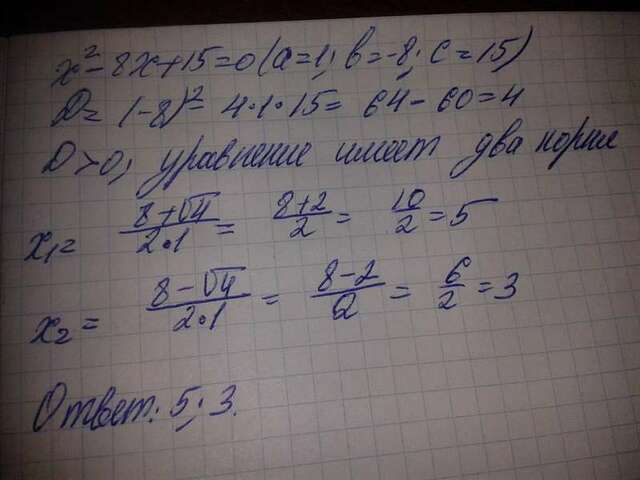 x² - 8x + 15 = 0 (a = 1; b = -8; c = 15)
D = (-8)² - 4·1·15 = 64 - 60 = 4
D > 0; уравнение имеет два корня
x₁ = (8 + √4)/(2·1) = (8 + 2)/2 = 10/2 = 5
x₂ = (8 - √4)/(2·1) = (8 - 2)/2 = 6/2 = 3
Ответ: 5; 3.